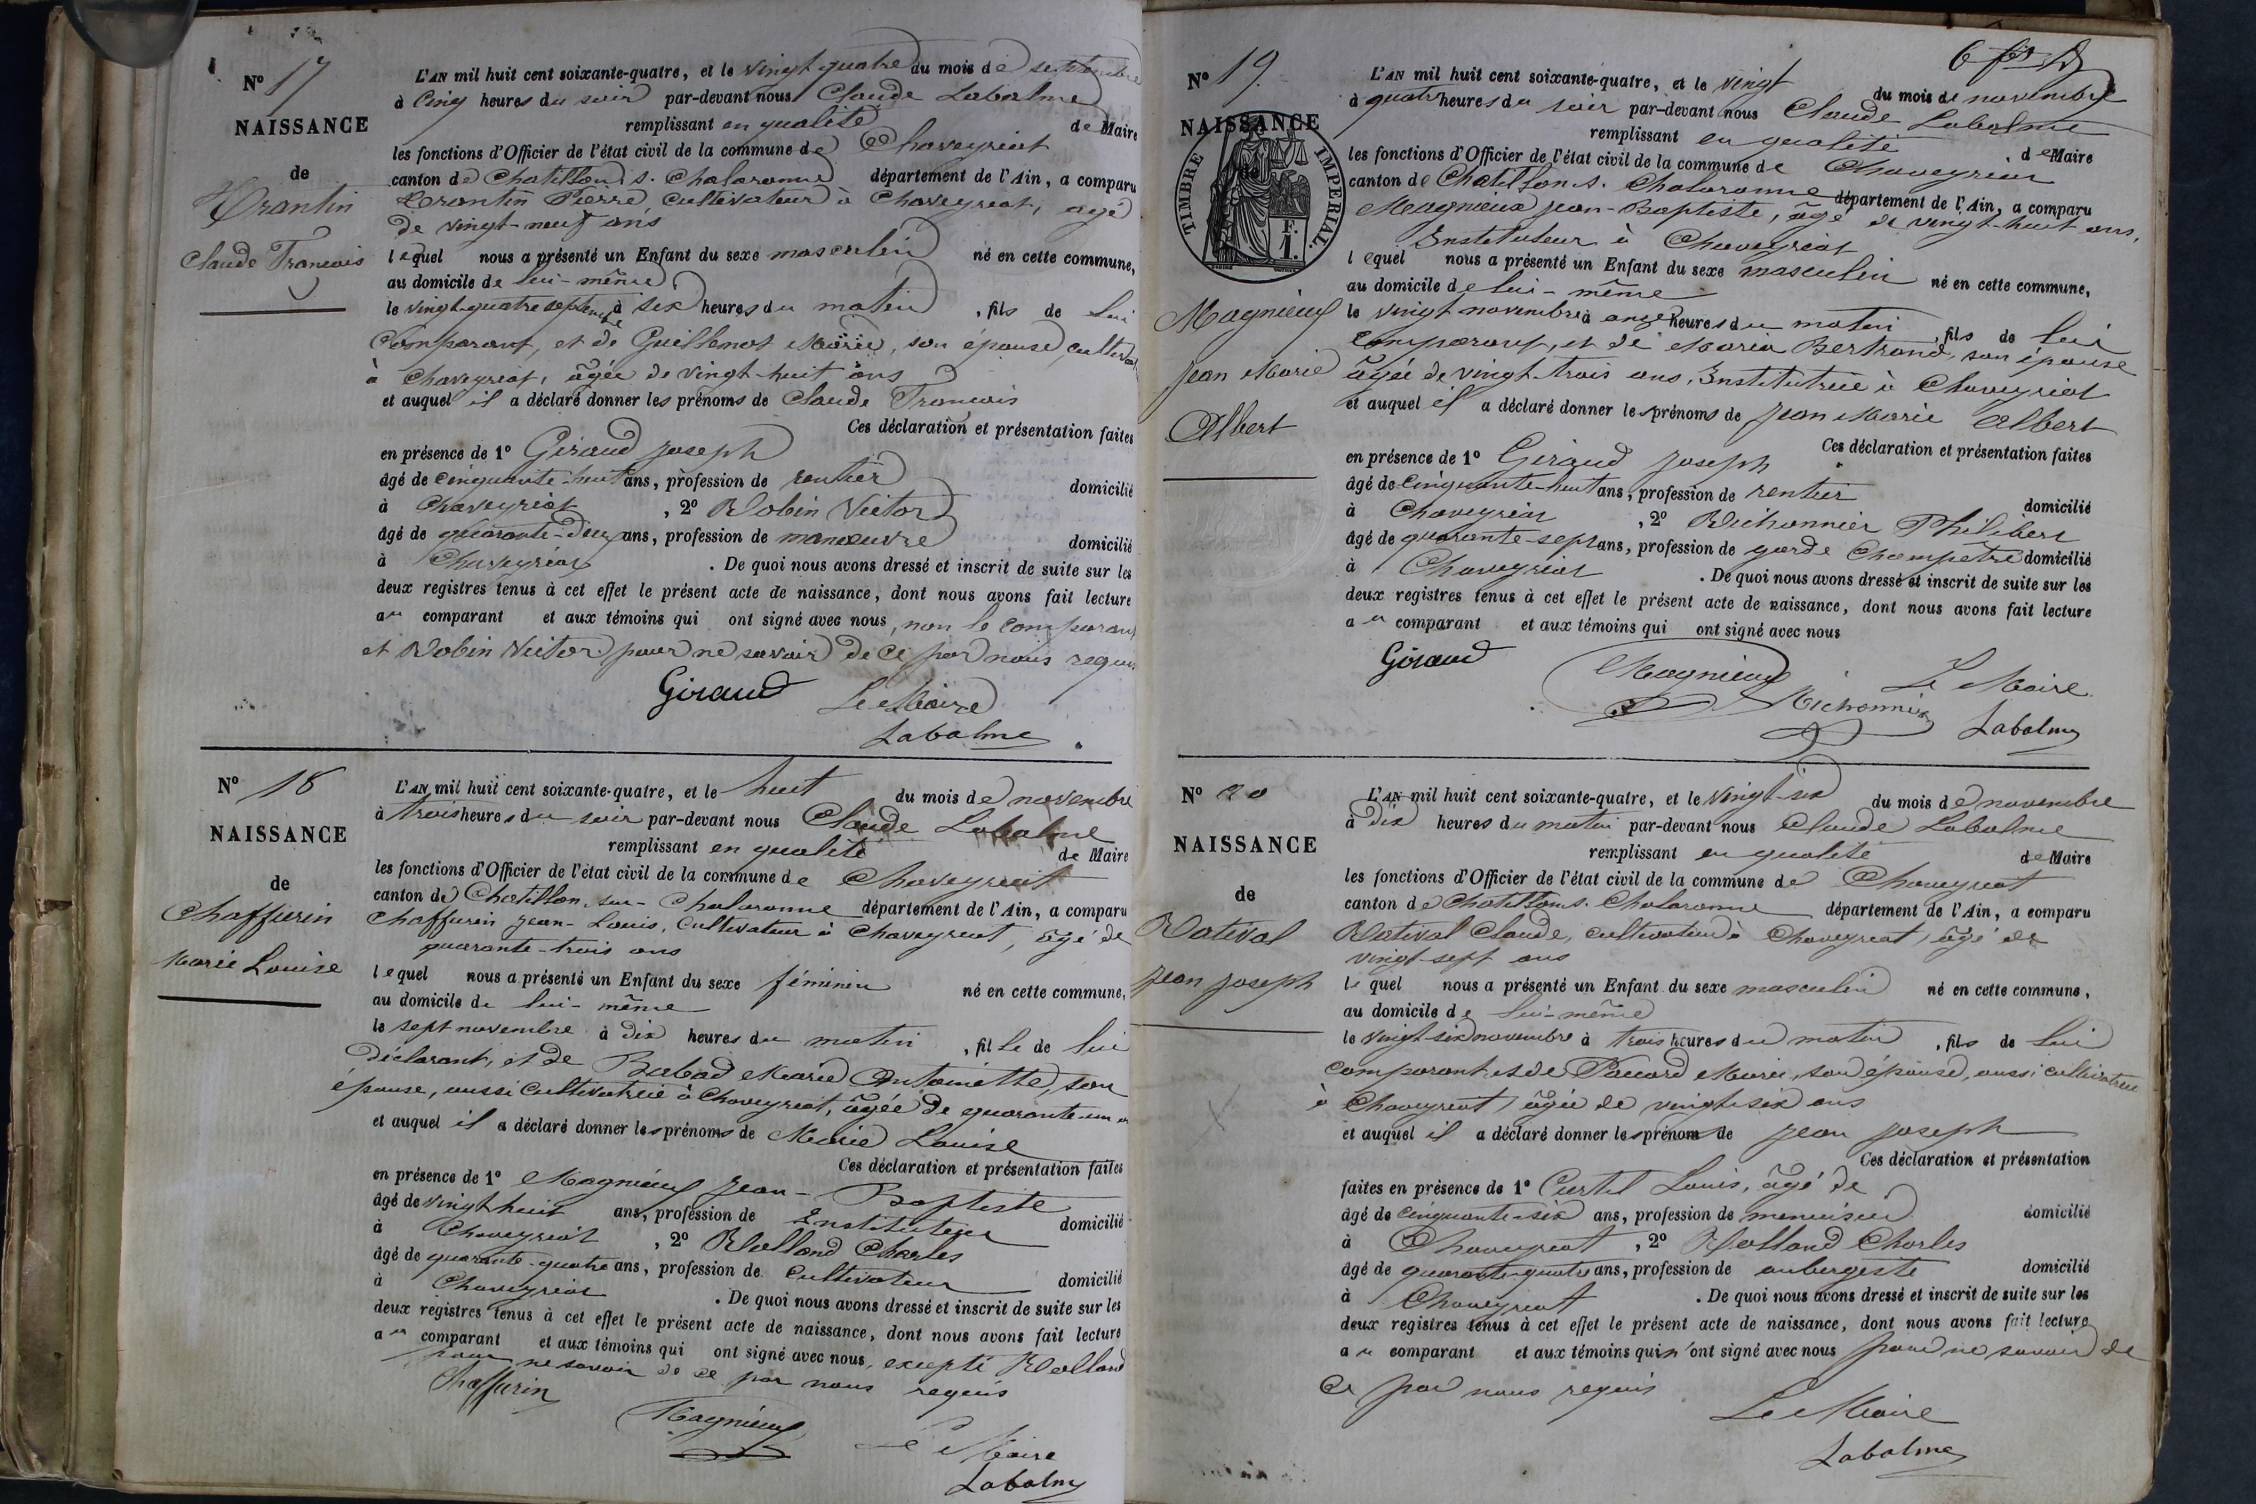 N° 17
NAISSANCE
de
Trantin
Claude François
L'AN mil huit cent soixante-quatre, et le vingt quatre du mois de septembre
à cinq heures du soir par-devant nous Claude Labalme
remplissant en qualité de Maire
les fonctions d'Officier de l'état civil de la commune de Chaveyriat
canton de Chatillon s. Chalaronne département de l'Ain, a comparu
Trantin Pierre cultivateur à Chaveyriat, agé
de vingt-neuf ans
lequel nous a présenté un Enfant du sexe masculin né en cette commune,
au domicile de lui-même
le vingt-quatre septembre à six heures du matin, fils de lui
Comparant, et de Guillenot Marie, son épouse,
à Chaveyriat, âgée de vingt-huit ans
et auquel il a déclaré donner les prénoms de Claude François
Ces déclaration et présentation faites
en présence de 1° Giraud Joseph
âgé de cinquante-huit ans, profession de rentier domicilié
à Chaveyriat, 2° Robin Victor
âgé de quarante-deux ans, profession de manœuvre domicilié
à Chaveyriat. De quoi nous avons dressé et inscrit de suite sur les
deux registres tenus à cet effet le présent acte de naissance, dont nous avons fait lecture
au comparant et aux témoins qui ont signé avec nous, non le comparant
et Robin Victor pour ne savoir de ce par nous requis
Giraud Le Maire
Labalme
N° 18
NAISSANCE
de
Chaffurin
Marie Louise
L'AN mil huit cent soixante-quatre, et le huit du mois de novembre
à trois heures du soir par-devant nous Claude Labalme
remplissant en qualité de Maire
les fonctions d'Officier de l'état civil de la commune de Chaveyriat
canton de Chatillon-sur-Chalaronne département de l'Ain, a comparu
Chaffurin Jean-Louis, cultivateur à Chaveyriat, âgé de
quarante-trois ans
lequel nous a présenté un Enfant du sexe féminin né en cette commune,
au domicile de lui-même
le sept novembre à dix heures du matin, fille de lui
déclarant, et de Babad Marie Antoinette, son
épouse, aussi cultivatrice à Chaveyriat, âgée de quarante-un
et auquel il a déclaré donner les prénoms de Marie Louise
Ces déclaration et présentation faites
en présence de 1° Magnieux Jean-Baptiste
âgé de vingt huit ans, profession de Instituteur domicilié
à Chaveyriat, 2° Rolland Charles
âgé de quarante-quatre ans, profession de cultivateur domicilié
à Chaveyriat. De quoi nous avons dressé et inscrit de suite sur les
deux registres tenus à cet effet le présent acte de naissance, dont nous avons fait lecture
au comparant et aux témoins qui ont signé avec nous, excepté Rolland
pour ne savoir de ce par nous requis
Chaffurin
Magnieux Le Maire
Labalme
N° 19
NAISSANCE
TIMBRE IMPERIAL
1 F.
Magnieux
Jean Marie
Albert
L'AN mil huit cent soixante-quatre, et le vingt du mois de novembre
à quatre heures du soir par-devant nous Claude Labalme
remplissant en qualité de Maire
les fonctions d'Officier de l'état civil de la commune de Chaveyriat
canton de Chatillon s. Chalaronne département de l'Ain, a comparu
Magnieux Jean-Baptiste, âgé de vingt-huit ans,
Instituteur à Chaveyriat
lequel nous a présenté un Enfant du sexe masculin né en cette commune,
au domicile de lui-même
le vingt novembre à onze heures du matin, fils de lui
comparant, et de Maria Bertrand, son épouse
âgée de vingt-trois ans, Institutrice à Chaveyriat
et auquel il a déclaré donner les prénoms de Jean Marie Albert
Ces déclaration et présentation faites
en présence de 1° Giraud Joseph
âgé de cinquante-huit ans, profession de rentier domicilié
à Chaveyriat, 2° Michonnier Philibert
âgé de quarante-sept ans, profession de garde Champêtre domicilié
à Chaveyriat. De quoi nous avons dressé et inscrit de suite sur les
deux registres tenus à cet effet le présent acte de naissance, dont nous avons fait lecture
au comparant et aux témoins qui ont signé avec nous
Giraud Magnieux Michonnier Le Maire
Labalme
N° 20
NAISSANCE
de
Rativat
Jean Joseph
L'AN mil huit cent soixante-quatre, et le vingt-six du mois de novembre
à dix heures du matin par-devant nous Claude Labalme
remplissant en qualité de Maire
les fonctions d'Officier de l'état civil de la commune de Chaveyriat
canton de Chatillon s. Chalaronne département de l'Ain, a comparu
Rativat Claude, cultivateur à Chaveyriat, âgé de
vingt-sept ans
lequel nous a présenté un Enfant du sexe masculin né en cette commune,
au domicile de lui-même
le vingt-six novembre à trois heures du matin, fils de lui
comparant et de Pauard Marie, son épouse, aussi cultivatrice
à Chaveyriat, âgée de vingt-six ans
et auquel il a déclaré donner les prénoms de Jean Joseph
Ces déclaration et présentation
faites en présence de 1° Curtil Louis, âgé de
âgé de cinquante-six ans, profession de menuisier domicilié
à Chaveyriat, 2° Rolland Charles
âgé de quarante-quatre ans, profession de aubergiste domicilié
à Chaveyriat. De quoi nous avons dressé et inscrit de suite sur les
deux registres tenus à cet effet le présent acte de naissance, dont nous avons fait lecture
au comparant et aux témoins qui n'ont signé avec nous pour ne savoir de
ce par nous requis
Le Maire
Labalme